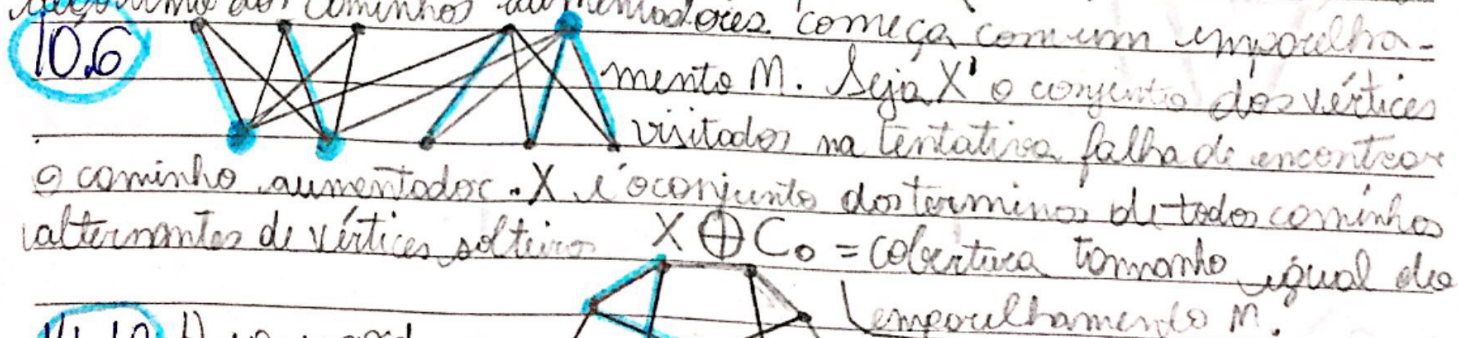 algoritmo dos caminhos aumentadores começa com um emparelha-
10.6
mento M. Seja X' o conjunto dos vértices
visitados na tentativa falha de encontrar
o caminho aumentador. X é o conjunto dos terminos de todos caminhos
alternantes de vértices solteiros X ⊕ C₀ = cobertura tamanho igual do
emparelhamento M.